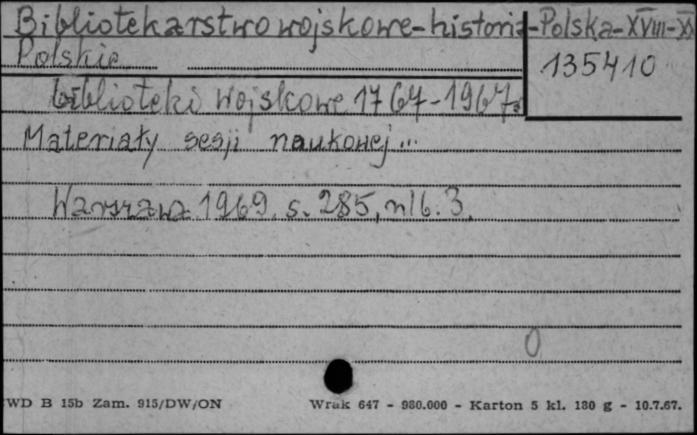 Bibliotekarstwo wojskowe-historia-Polska-XVIII-XX
Polskie
135410
biblioteki wojskowe 1767-1967.
Materiały sesji naukowej...
Warszawa 1969. s. 285, nlb. 3.
0
WD B 15b Zam. 915/DW/ON Wrak 647 - 980.000 - Karton 5 kl. 180 g - 10.7.67.